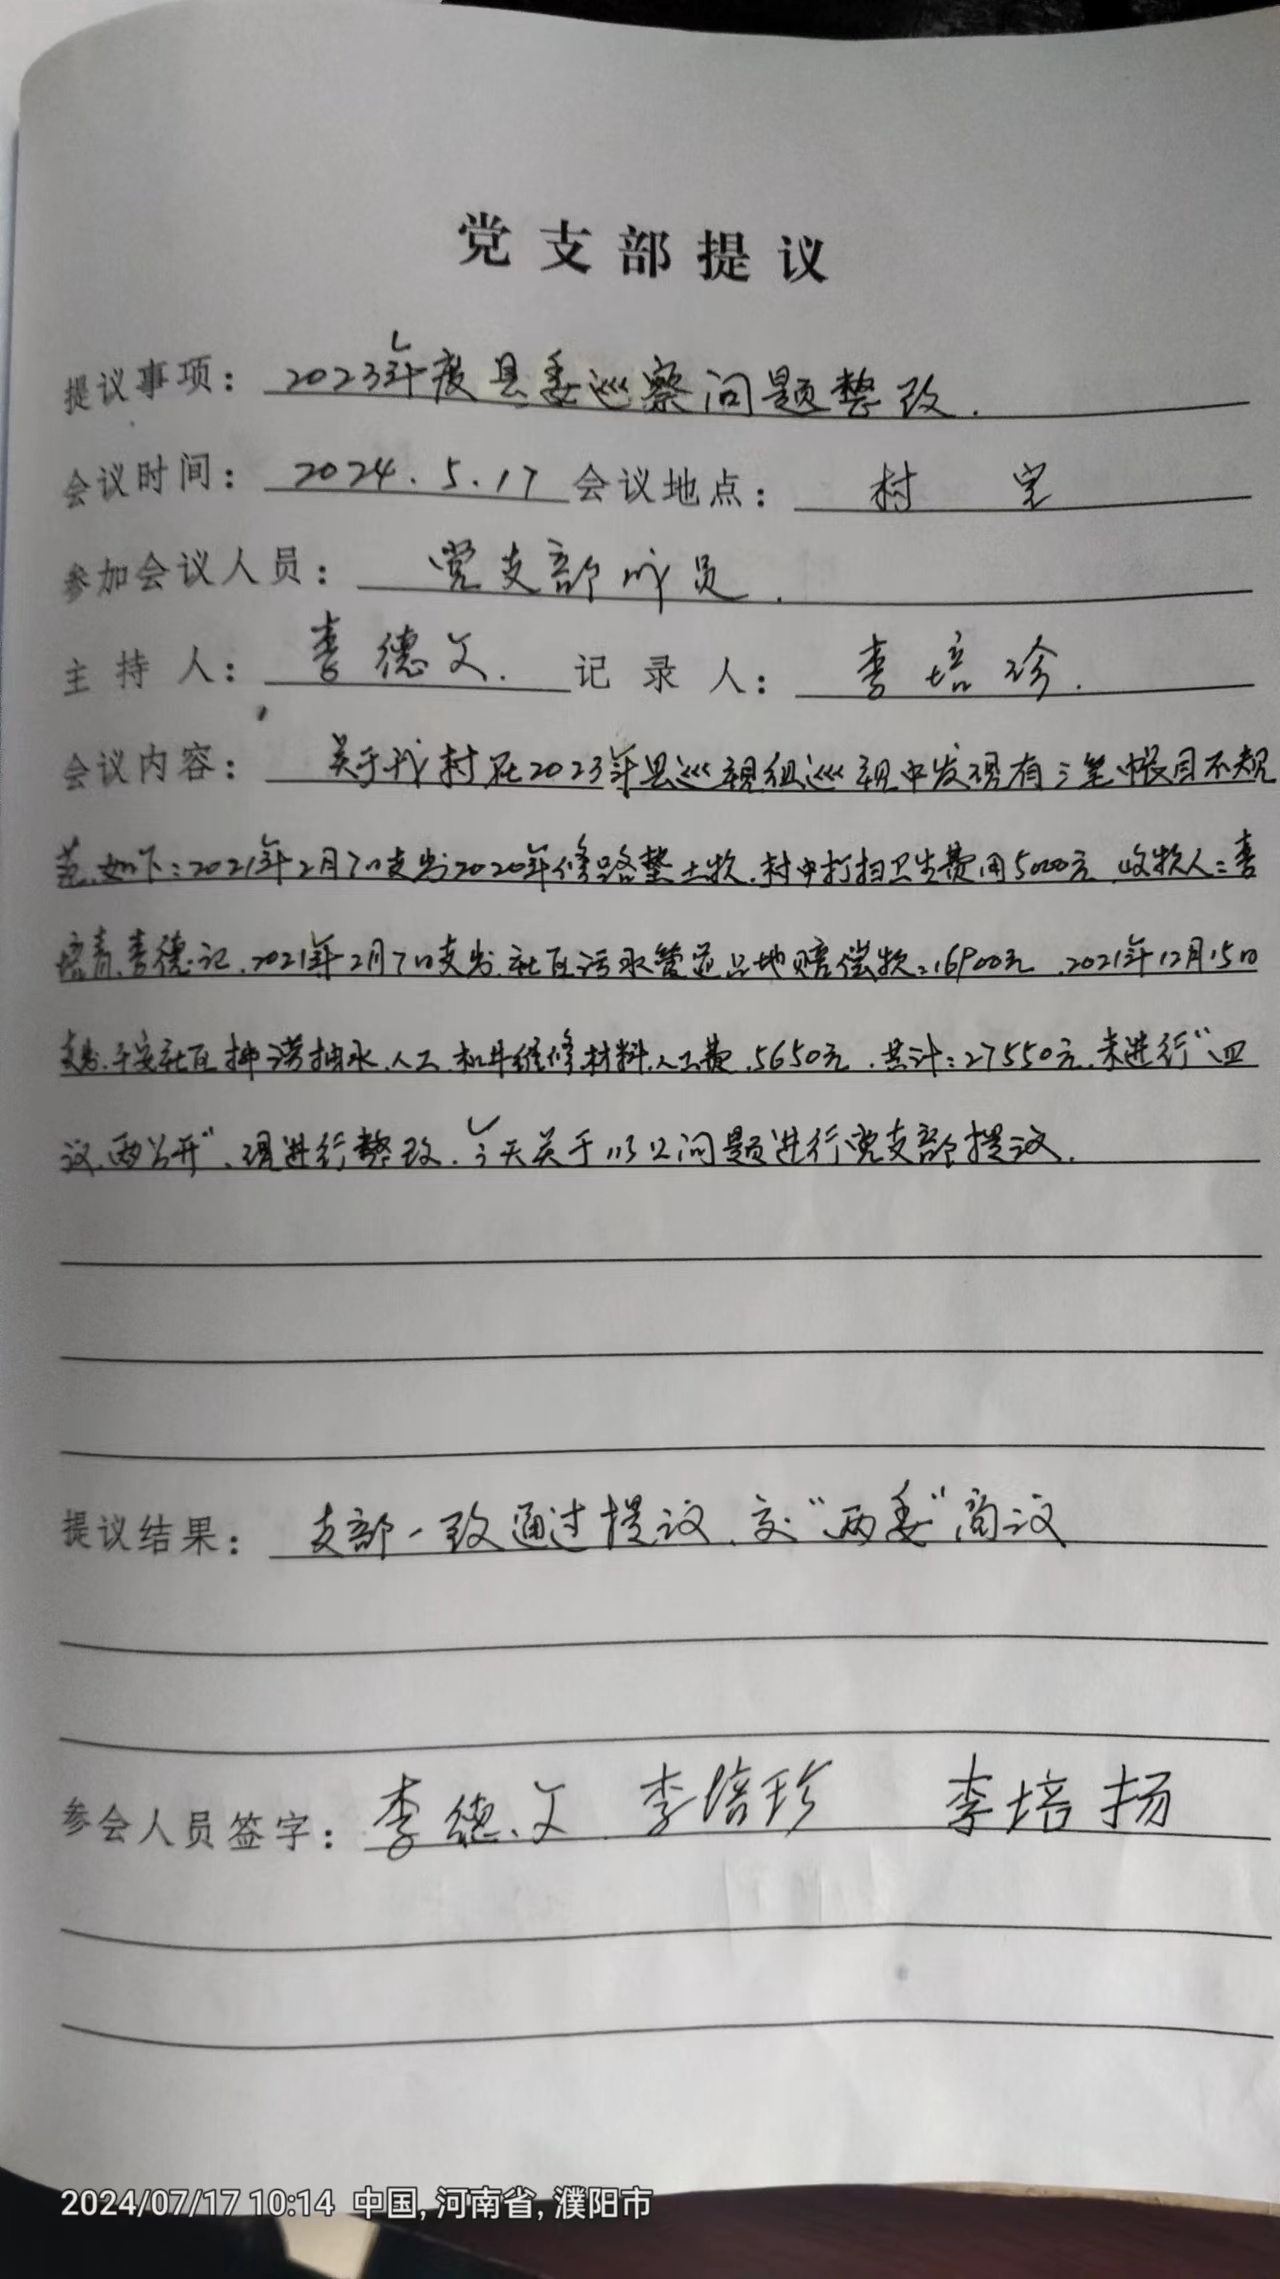 党支部提议
提议事项：2023年度县委巡察问题整改.
会议时间：2024.5.17 会议地点：村室
参加会议人员：党支部成员.
主持人：李德文. 记录人：李培珍.
会议内容：关于我村在2023年县巡视组巡视中发现有三笔帐目不规
范.如下：2021年2月7日支出2020年修路垫土款.村中打扫卫生费用5000元.收款人：李
培青.李德记.2021年2月7日支出.社区污水管道占地赔偿款：16900元.2021年12月15日
支出.平安社区排涝抽水.人工.机井维修.材料.人工费.5650元.共计：27550元.未进行“四
议.两公开”.现进行整改.今天关于以上问题进行党支部提议.
提议结果：支部一致通过提议.交“两委”商议
参会人员签字：李德文.李培珍 李培扬
2024/07/17 10:14 中国, 河南省, 濮阳市